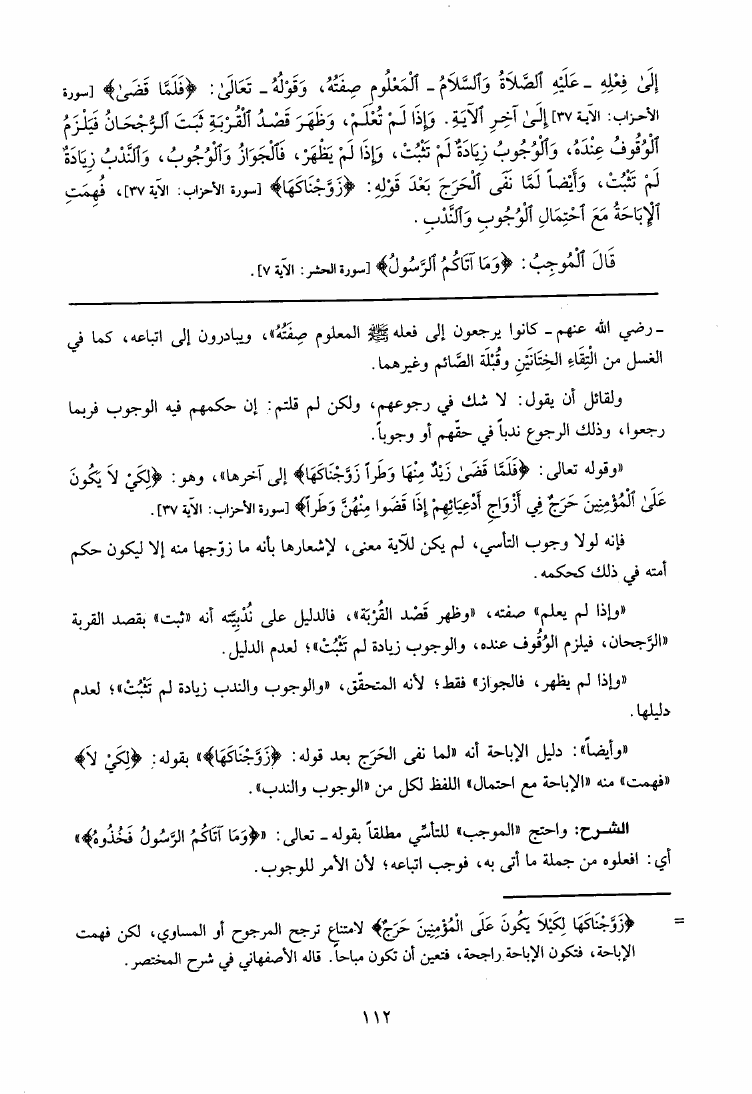 إِلَى فِعْلِهِ ـ عَلَيْهِ ٱلصَّلَاةُ وَٱلسَّلَامُ ـ ٱلْمَعْلُومِ صِفَتُهُ، وَقَوْلُهُ ـ تَعَالَىٰ: ﴿فَلَمَّا قَضَىٰ﴾ [سورة
الأحزاب: الآية ٣٧] إِلَىٰ آخِرِ ٱلآيَةِ. وَإِذَا لَمْ تُعْلَمْ، وَظَهَرَ قَصْدُ ٱلْقُرْبَةِ ثَبَتَ ٱلرُّجْحَانُ فَيَلْزَمُ
ٱلْوُقُوفُ عِنْدَهُ، وَٱلْوُجُوبُ زِيَادَةٌ لَمْ تَثْبُتْ، وَإِذَا لَمْ يَظْهَرْ، فَٱلْجَوَازُ وَٱلْوُجُوبُ، وَٱلنَّدْبُ زِيَادَةٌ
لَمْ تَثْبُتْ، وَأَيْضاً لَمَّا نَفَى ٱلْحَرَجَ بَعْدَ قَوْلِهِ: ﴿زَوَّجْنَاكَهَا﴾ [سورة الأحزاب: الآية ٣٧]، فُهِمَتِ
ٱلْإِبَاحَةُ مَعَ ٱحْتِمَالِ ٱلْوُجُوبِ وَٱلنَّدْبِ.
قَالَ ٱلْمُوجِبُ: ﴿وَمَا آتَاكُمُ ٱلرَّسُولُ﴾ [سورة الحشر: الآية ٧].
ـ رضي الله عنهم ـ كانوا يرجعون إلى فعله ﷺ المعلوم صِفَتُهُ»، ويبادرون إلى اتباعه، كما في
الغسل من الْتِقَاءِ الخِتَانَيْنِ وقُبْلَة الصَّائم وغيرهما.
ولقائل أن يقول: لا شك في رجوعهم، ولكن لم قلتم: إن حكمهم فيه الوجوب فربما
رجعوا، وذلك الرجوع ندباً في حقّهم أو وجوباً.
«وقوله تعالى: ﴿فَلَمَّا قَضَىٰ زَيْدٌ مِنْهَا وَطَراً زَوَّجْنَاكَهَا﴾ إلى آخرها»، وهو: ﴿لِكَيْ لاَ يَكُونَ
عَلَىٰ الْمُؤْمِنِينَ حَرَجٌ فِي أَزْوَاجِ أَدْعِيَائِهِمْ إِذَا قَضَوا مِنْهُنَّ وَطَراً﴾ [سورة الأحزاب: الآية ٣٧].
فإنه لولا وجوب التأسي، لم يكن للآية معنى، لإشعارها بأنه ما زوّجها منه إلا ليكون حكم
أمته في ذلك كحكمه.
«وإذا لم يعلم» صفته، «وظهر قَصْد القُرْبَة»، فالدليل على نُدْبِيَّته أنه «ثبت» بقصد القربة
«الرَّجحان، فيلزم الوُقُوف عنده، والوجوب زيادة لم تَثْبُتْ»؛ لعدم الدليل.
«وإذا لم يظهر، فالجواز» فقط؛ لأنه المتحقّق، «والوجوب والندب زيادة لم تَثْبُتْ»؛ لعدم
دليلها.
«وأيضاً»: دليل الإباحة أنه «لما نفى الحَرَج بعد قوله: ﴿زَوَّجْنَاكَهَا﴾» بقوله: ﴿لِكَيْ لاَ﴾
«فهمت» منه «الإباحة مع احتمال» اللفظ لكل من «الوجوب والندب».
الشرح: واحتج «الموجب» للتأسِّي مطلقاً بقوله ـ تعالى: «﴿وَمَا آتَاكُمُ الرَّسُولُ فَخُذُوهُ﴾»
أي: افعلوه من جملة ما أتى به، فوجب اتباعه؛ لأن الأمر للوجوب.
= ﴿زَوَّجْنَاكَهَا لِكَيْلاَ يَكُونَ عَلَى الْمُؤْمِنِينَ حَرَجٌ﴾ لامتناع ترجح المرجوح أو المساوي، لكن فهمت
الإباحة، فتكون الإباحة راجحة، فتعين أن تكون مباحاً. قاله الأصفهاني في شرح المختصر.
١١٢